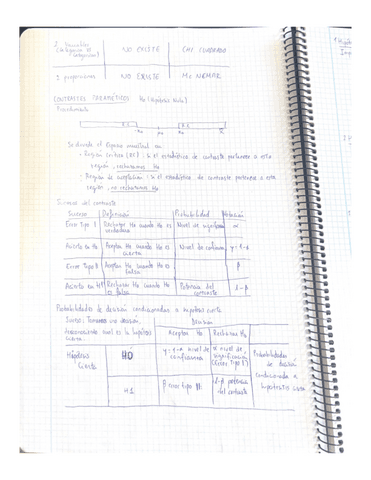 2 Variables
NO EXISTE CHI CUADRADO
2 proporciones NO EXISTE Mc NEMAR
CONTRASTES Ho (Hipótesis Nula)
Procedimiento
Se divide el espacio muestral en:
- Región crítica (RC): Si el estadístico de contraste pertenece a esta
región, rechazamos Ho
- Región de aceptación: Si el estadístico de contraste pertenece a esta
región, no rechazamos Ho
Sucesos del contraste
Suceso Definición Probabilidad Notación
Error tipo I Rechazar Ho cuando Ho es verdadera Nivel de significación α
Acierto en Ho Aceptar Ho cuando Ho es cierta Nivel de confianza γ = 1-α
Error Tipo II Aceptar Ho cuando Ho es falsa β
Acierto en H1 Rechazar Ho cuando Ho es falsa Potencia del contraste 1-β
Probabilidades de decisión condicionadas a hipótesis cierta
Suceso: Tomamos una decisión Decisión
desconociendo cual es la hipótesis
cierta. Aceptar Ho Rechazar Ho
Hipótesis Cierta H0 γ = 1-α nivel de confianza α nivel de significación (Error tipo I) Probabilidades de decisión condicionada a hipótesis cierta
H1 β error tipo II 1-β potencia del contraste